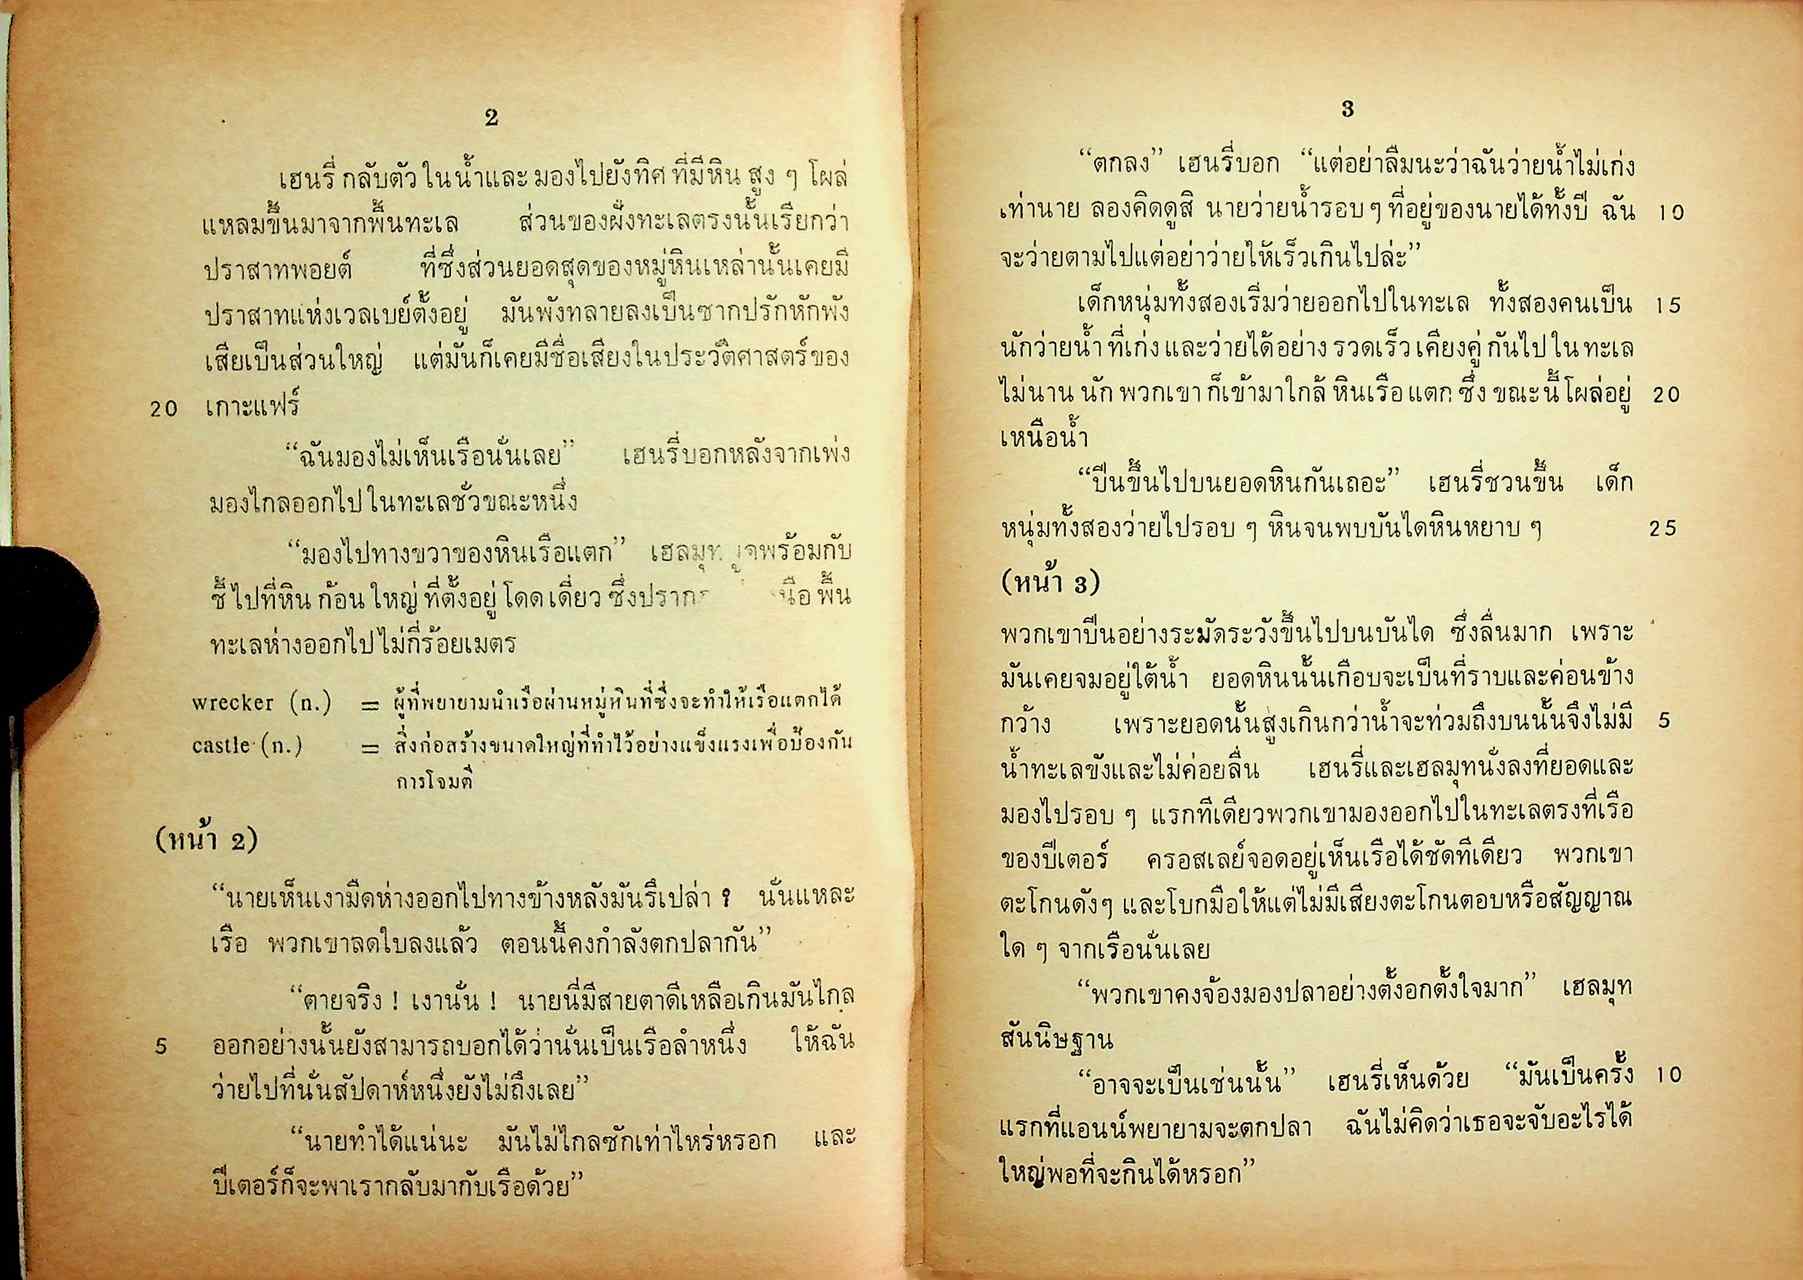 2
เฮนรี่ กลับตัว ในน้ำและ มองไปยังทิศ ที่มีหิน สูง ๆ โผล่
แหลมขึ้นมาจากพื้นทะเล ส่วนของฝั่งทะเลตรงนั้นเรียกว่า
ปราสาทพอยต์ ที่ซึ่งส่วนยอดสุดของหมู่หินเหล่านั้นเคยมี
ปราสาทแห่งเวลเบย์ตั้งอยู่ มันพังทลายลงเป็นซากปรักหักพัง
เสียเป็นส่วนใหญ่ แต่มันก็เคยมีชื่อเสียงในประวัติศาสตร์ของ
20 เกาะแฟร์
“ฉันมองไม่เห็นเรือนั่นเลย” เฮนรี่บอกหลังจากเพ่ง
มองไกลออกไป ในทะเลชั่วขณะหนึ่ง
“มองไปทางขวาของหินเรือแตก” เฮลมุท พร้อมกับ
ชี้ ไปที่หิน ก้อน ใหญ่ ที่ตั้งอยู่ โดด เดี่ยว ซึ่ง พื้น
ทะเลห่างออกไป ไม่กี่ร้อยเมตร
wrecker (n.) = ผู้ที่พยายามนำเรือผ่านหมู่หินที่ซึ่งจะทำให้เรือแตกได้
castle (n.) = สิ่งก่อสร้างขนาดใหญ่ที่ทำไว้อย่างแข็งแรงเพื่อป้องกัน
การโจมตี
(หน้า 2)
“นายเห็นเงามืดห่างออกไปทางข้างหลังมันรึเปล่า ? นั่นแหละ
เรือ พวกเขาลดใบลงแล้ว ตอนนี้คงกำลังตกปลากัน”
“ตายจริง ! เงานั่น ! นายนี่มีสายตาดีเหลือเกินมันไกล
5 ออกอย่างนั้นยังสามารถบอกได้ว่านั่นเป็นเรือลำหนึ่ง ให้ฉัน
ว่ายไปที่นั่นสัปดาห์หนึ่งยังไม่ถึงเลย”
“นายทำได้แน่นะ มันไม่ไกลซักเท่าไหร่หรอก และ
ปีเตอร์ก็จะพาเรากลับมากับเรือด้วย”
3
“ตกลง” เฮนรี่บอก “แต่อย่าลืมนะว่าฉันว่ายน้ำไม่เก่ง
เท่านาย ลองคิดดูสิ นายว่ายน้ำรอบ ๆ ที่อยู่ของนายได้ทั้งปี ฉัน 10
จะว่ายตามไปแต่อย่าว่ายให้เร็วเกินไปล่ะ”
เด็กหนุ่มทั้งสองเริ่มว่ายออกไปในทะเล ทั้งสองคนเป็น 15
นักว่ายน้ำ ที่เก่ง และว่ายได้อย่าง รวดเร็ว เคียงคู่ กันไป ใน ทะเล
ไม่นาน นัก พวกเขา ก็เข้ามาใกล้ หินเรือ แตก ซึ่ง ขณะนี้ โผล่อยู่ 20
เหนือน้ำ
“ปีนขึ้นไปบนยอดหินกันเถอะ” เฮนรี่ชวนขึ้น เด็ก
หนุ่มทั้งสองว่ายไปรอบ ๆ หินจนพบบันไดหินหยาบ ๆ 25
(หน้า 3)
พวกเขาปีนอย่างระมัดระวังขึ้นไปบนบันได ซึ่งลื่นมาก เพราะ
มันเคยจมอยู่ใต้น้ำ ยอดหินนั้นเกือบจะเป็นที่ราบและค่อนข้าง
กว้าง เพราะยอดนั้นสูงเกินกว่าน้ำจะท่วมถึงบนนั้นจึงไม่มี 5
น้ำทะเลขังและไม่ค่อยลื่น เฮนรี่และเฮลมุทนั่งลงที่ยอดและ
มองไปรอบ ๆ แรกทีเดียวพวกเขามองออกไปในทะเลตรงที่เรือ
ของปีเตอร์ ครอสเลย์จอดอยู่เห็นเรือได้ชัดทีเดียว พวกเขา
ตะโกนดังๆ และโบกมือให้แต่ไม่มีเสียงตะโกนตอบหรือสัญญาณ
ใด ๆ จากเรือนั่นเลย
“พวกเขาคงจ้องมองปลาอย่างตั้งอกตั้งใจมาก” เฮลมุท
สันนิษฐาน
“อาจจะเป็นเช่นนั้น” เฮนรี่เห็นด้วย “มันเป็นครั้ง 10
แรกที่แอนน์พยายามจะตกปลา ฉันไม่คิดว่าเธอจะจับอะไรได้
ใหญ่พอที่จะกินได้หรอก”